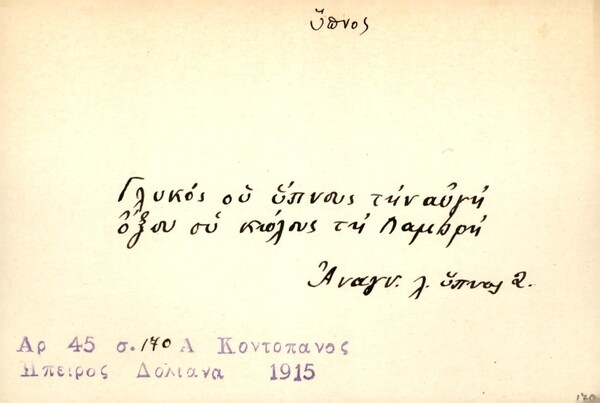 ὕπνος
Γλυκός οὑ ὕπνους τήν αὐγή
ὄξου οὑ κῶλους τή Λαμπρή
Ἀναγν. λ. ὕπνος 2.
Αρ 45 σ. 170 Α Κοντοπανος
Ηπειρος Δολιανα 1915
170